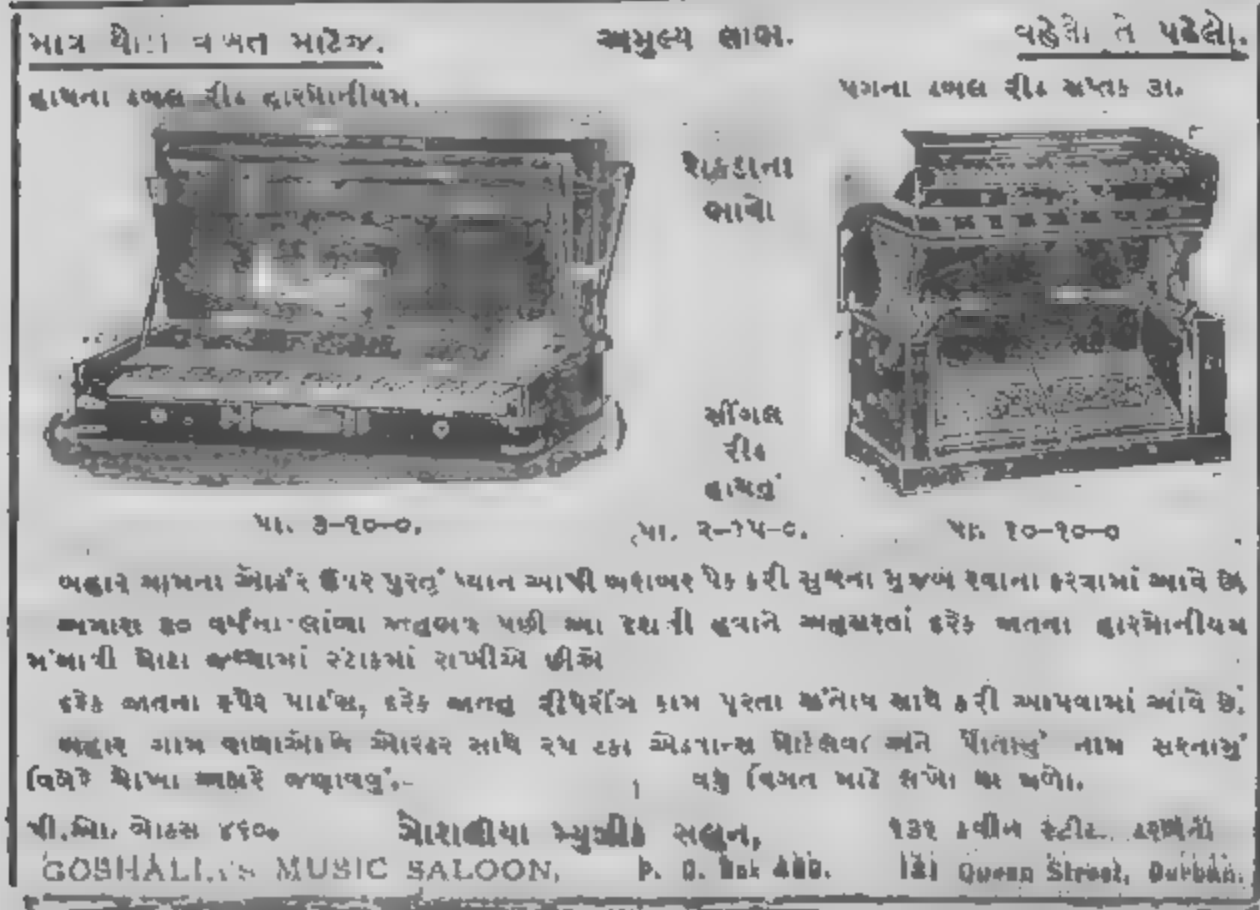 માત્ર થોડા વખત માટેજ.
અમુલ્ય લાભ.
વહેલો તે પહેલો.
હાથના ડબલ રીડ હારમોનીયમ.
પગના ડબલ રીડ સપ્તક ૩ા.
રોકડાના
ભાવો
સીંગલ
રીડ
હાથનું
પા. ૩-૧૦-૦.
પા. ૨-૧૫-૦.
પા. ૧૦-૧૦-૦
બહાર ગામના ઓર્ડર ઉપર પુરતું ધ્યાન આપી બરાબર પેક કરી સુચના મુજબ રવાના કરવામાં આવે છે.
અમારા ૩૦ વર્ષના લાંબા અનુભવ પછી આ દેશની હવાને અનુસરતાં દરેક જાતના હારમોનીયમ
મંગાવી મોટા જથ્થામાં સ્ટોકમાં રાખીએ છીએ
દરેક જાતના સ્પેર પાર્ટસ, દરેક જાતનું રીપેરીંગ કામ પૂરતા સંતોષ સાથે કરી આપવામાં આવે છે.
બહાર ગામ વાળાઓએ ઓરડર સાથે ૨૫ ટકા એડવાન્સ મોકલવા અને પોતાનું નામ સરનામું
વિગેરે ચોખા અક્ષરે જણાવવું.-
વધુ વિગત માટે લખો યા મળો.
પી.ઓ. બોક્સ ૪૬૦.
ગોશાલીયા મ્યુઝીક સલુન,
૧૩૧ કવીન સ્ટ્રીટ. ડરબન
GOSHALIA'S MUSIC SALOON,
P. O. Box 460.
131 Queen Street, Durban.